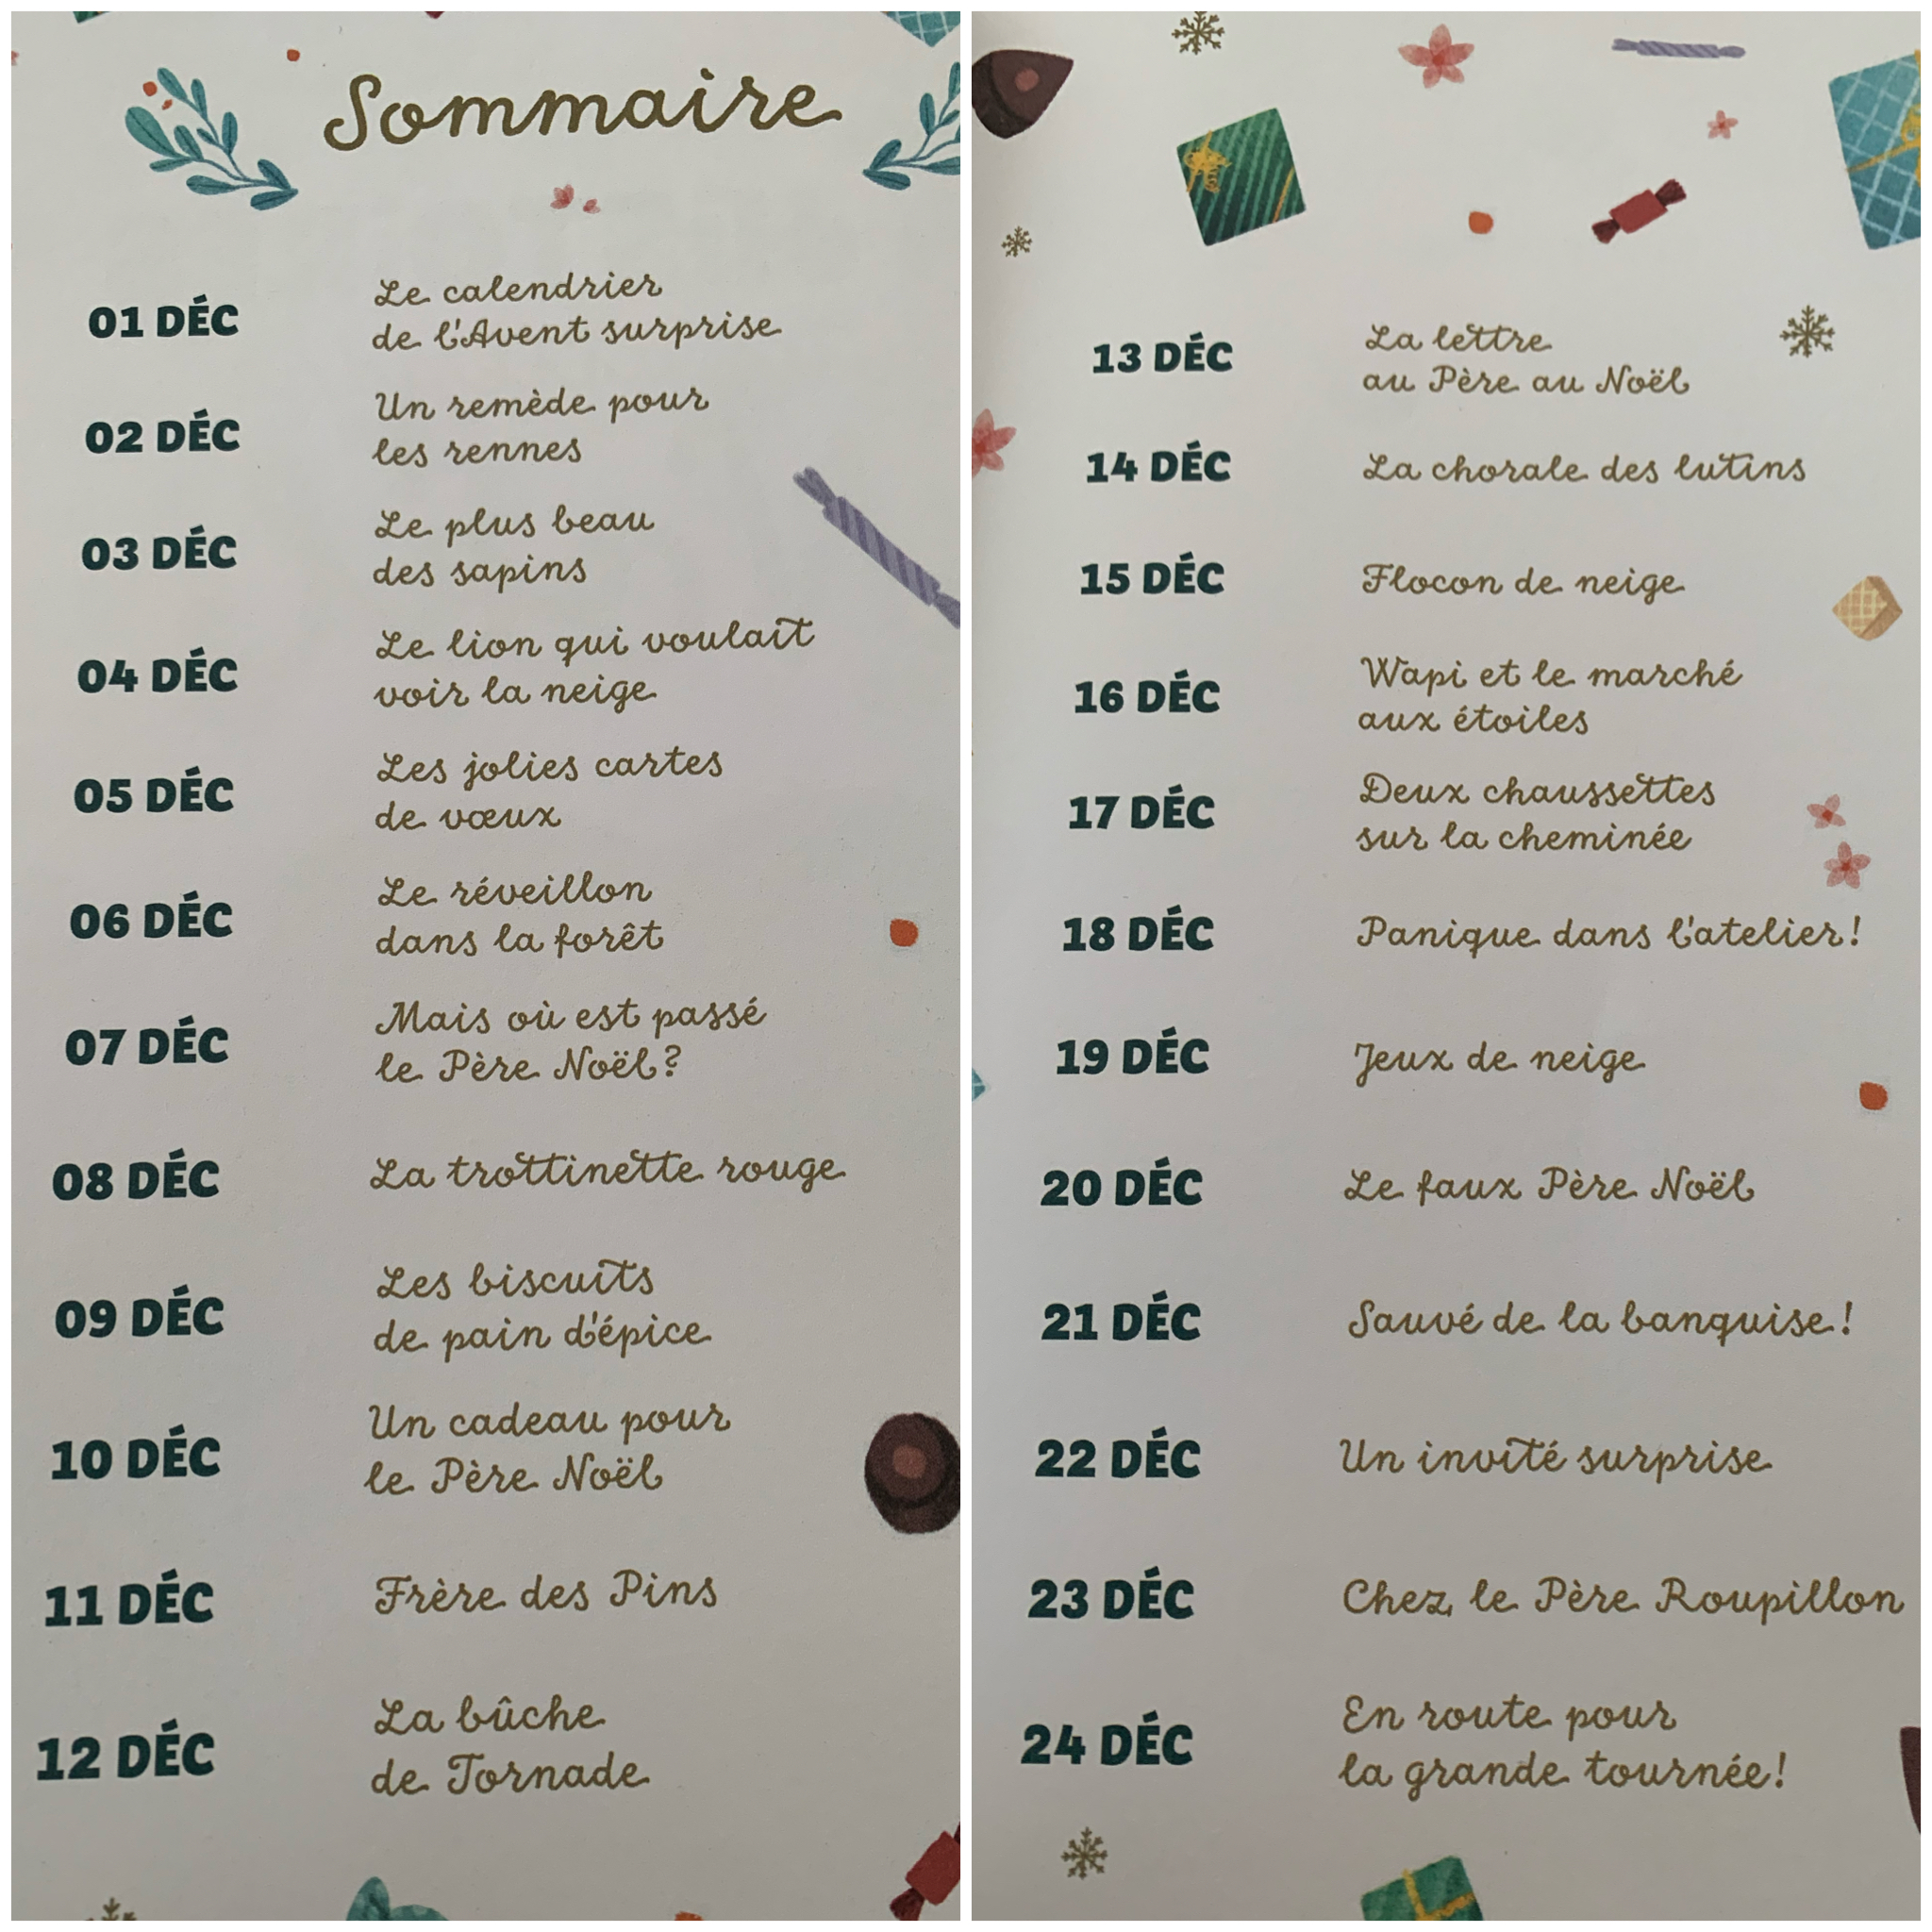 Sommaire
01 DÉC
Le calendrier
de l'Avent surprise
02 DÉC
Un remède pour
les rennes
03 DÉC
Le plus beau
des sapins
04 DÉC
Le lion qui voulait
voir la neige
05 DÉC
Les jolies cartes
de vœux
06 DÉC
Le réveillon
dans la forêt
07 DÉC
Mais où est passé
le Père Noël?
08 DÉC
La trottinette rouge
09 DÉC
Les biscuits
de pain d'épice
10 DÉC
Un cadeau pour
le Père Noël
11 DÉC
Frère des Pins
12 DÉC
La bûche
de Tornade
13 DÉC
La lettre
au Père au Noël
14 DÉC
La chorale des lutins
15 DÉC
Flocon de neige
16 DÉC
Wapi et le marché
aux étoiles
17 DÉC
Deux chaussettes
sur la cheminée
18 DÉC
Panique dans l'atelier!
19 DÉC
Jeux de neige
20 DÉC
Le faux Père Noël
21 DÉC
Sauvé de la banquise!
22 DÉC
Un invité surprise
23 DÉC
Chez le Père Roupillon
24 DÉC
En route pour
la grande tournée!